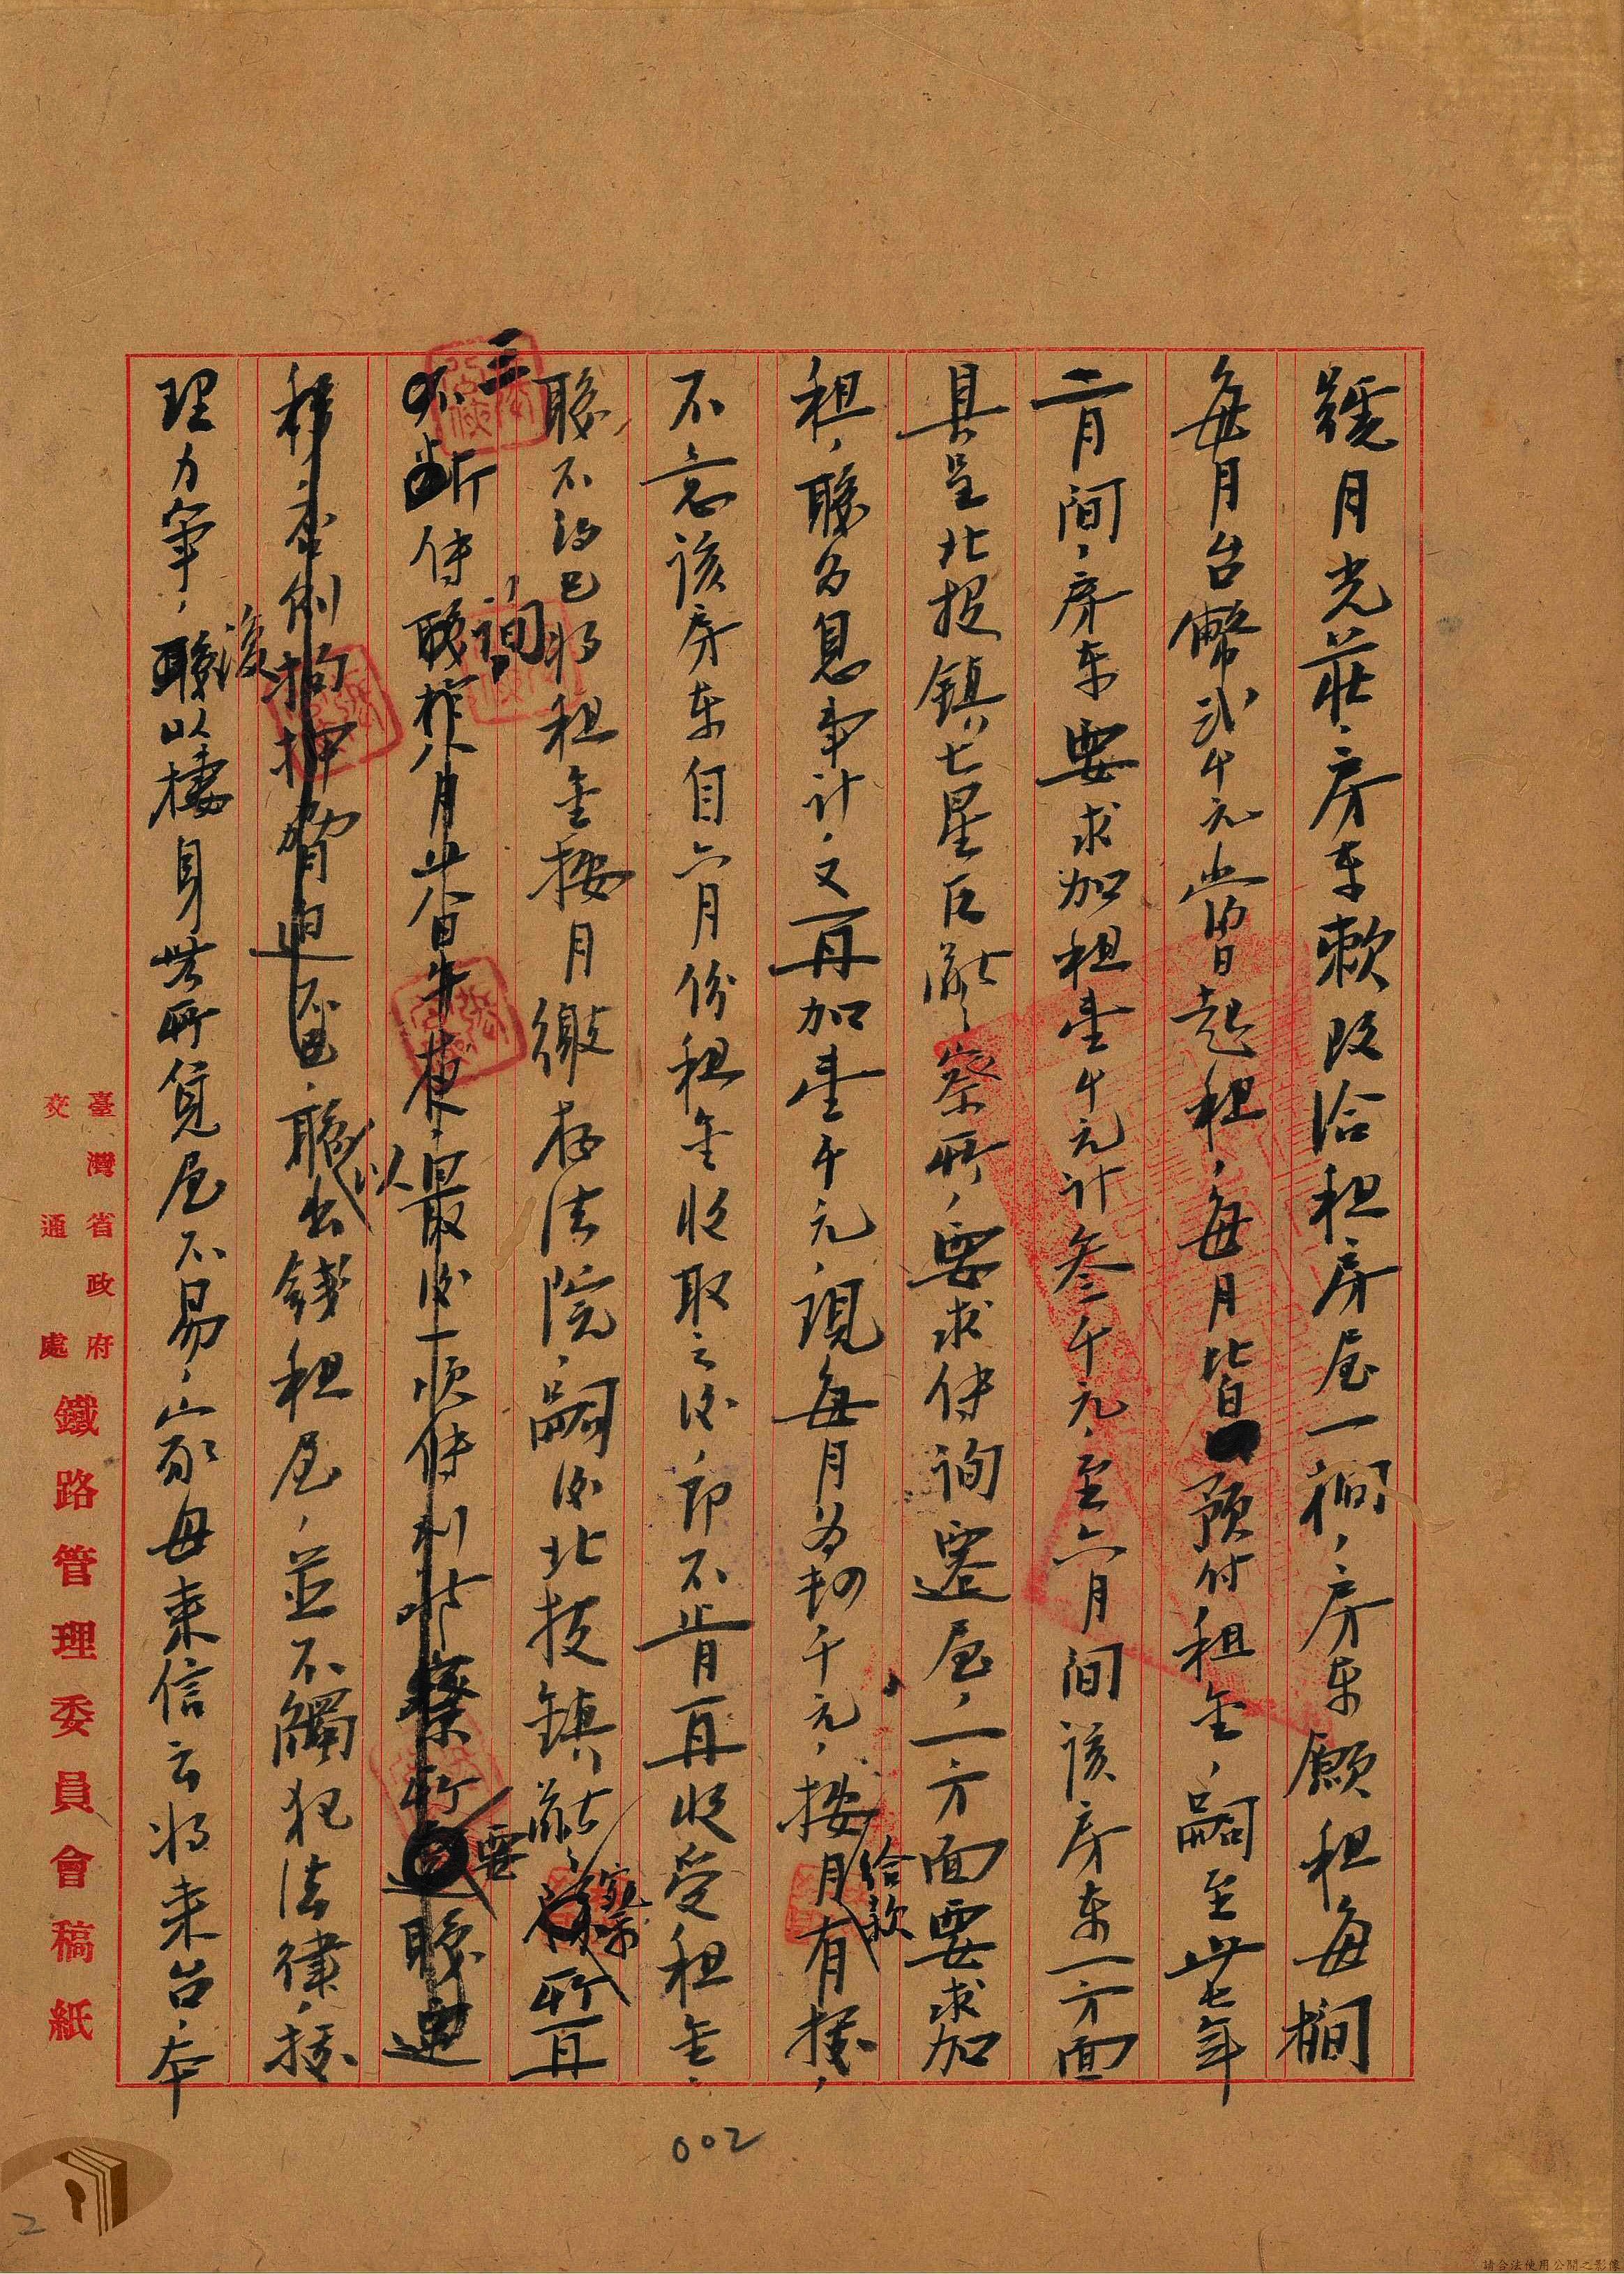 號月光莊、房東欶改洽租房屋一間，房東願租每間
每月台幣弍千元，當日起租，每月皆預付租金，嗣至卅七年
二月間，房東要求加租壹千元計叁千元，至六月間該房東一方面
具呈北投鎮七星區警察所，要求傳詢遷屋，一方面要求加
租，職為息事計，又再加壹千元，現每月為肆千元，按月給款有據，
不意該房東自六月份租金收取之後，即不肯再收受租金，
職不得已將租金按月繳存法院，嗣後北投鎮警察所再
三
不斷傳職
詢，
昨八月廿
日
最後一次傳
要職遷
移，本例拘押脅迫
職以出錢租屋，並不觸犯法律，據
理力爭，後職以棲身無所覓屋不易，家母來信云將來台，本
臺灣省政府
交通處
鐵路管理委員會稿紙
002
2
請合法使用公開之影像